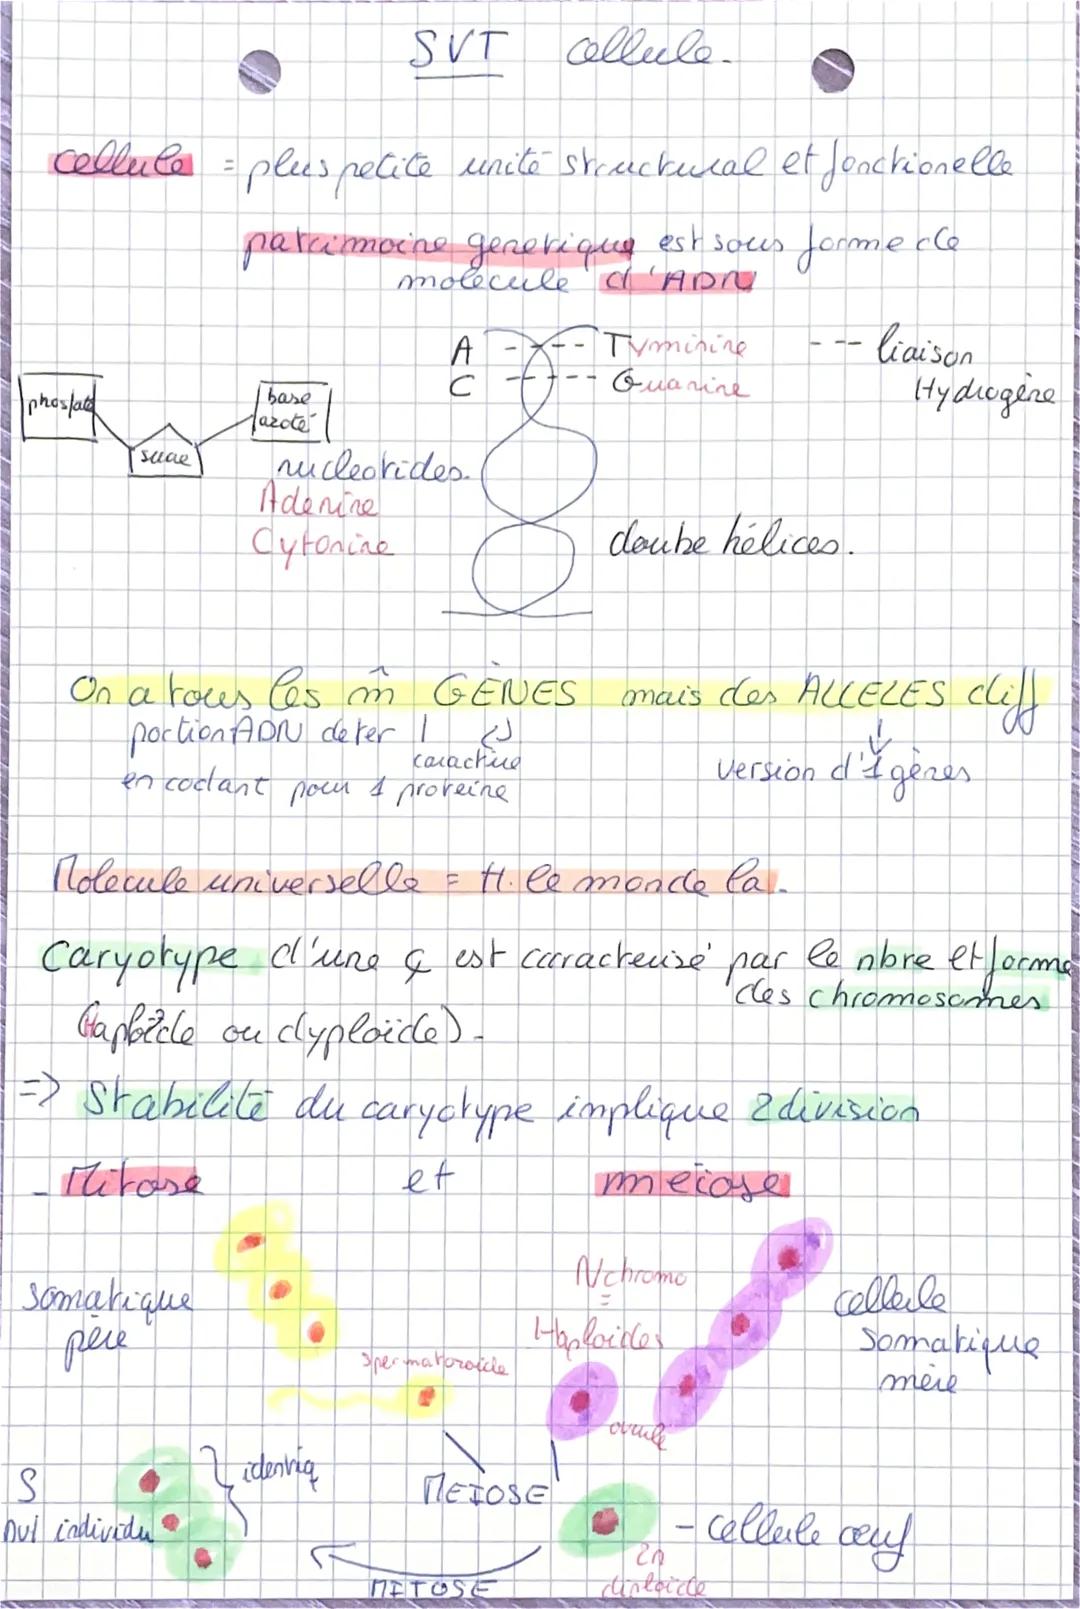 SVT cellule.
cellule = plus petite unité structural et fonctionelle
patrimoine genetique est sous forme de
molécule d'ADN
A --- --- Tyminine --- liaison
C --- --- Guanine Hydrogène
phosfate
base
azoté
sucre
nucleotides.
Adenine
Cytonine
doube hélices.
On a tous les m̂ GÈNES mais des ALLELES diff
portion ADN deter 1
caractère
en codant pour 1 proteine
version d'1 gènes
Molecule universelle = tt. le monde la.
Caryotype d'une ç est caracterisé par le nbre et forme
des chromosomes
(Haploïde ou dyploïde).
=> Stabilité du caryotype implique 2 division
- Mitose et meiose
somatique
père
spermatozoide
N chromo
=
Haploides
cellule
somatique
mère
ovule
MEIOSE
identiq
individu
- cellule œuf
2n
diploide
MITOSE